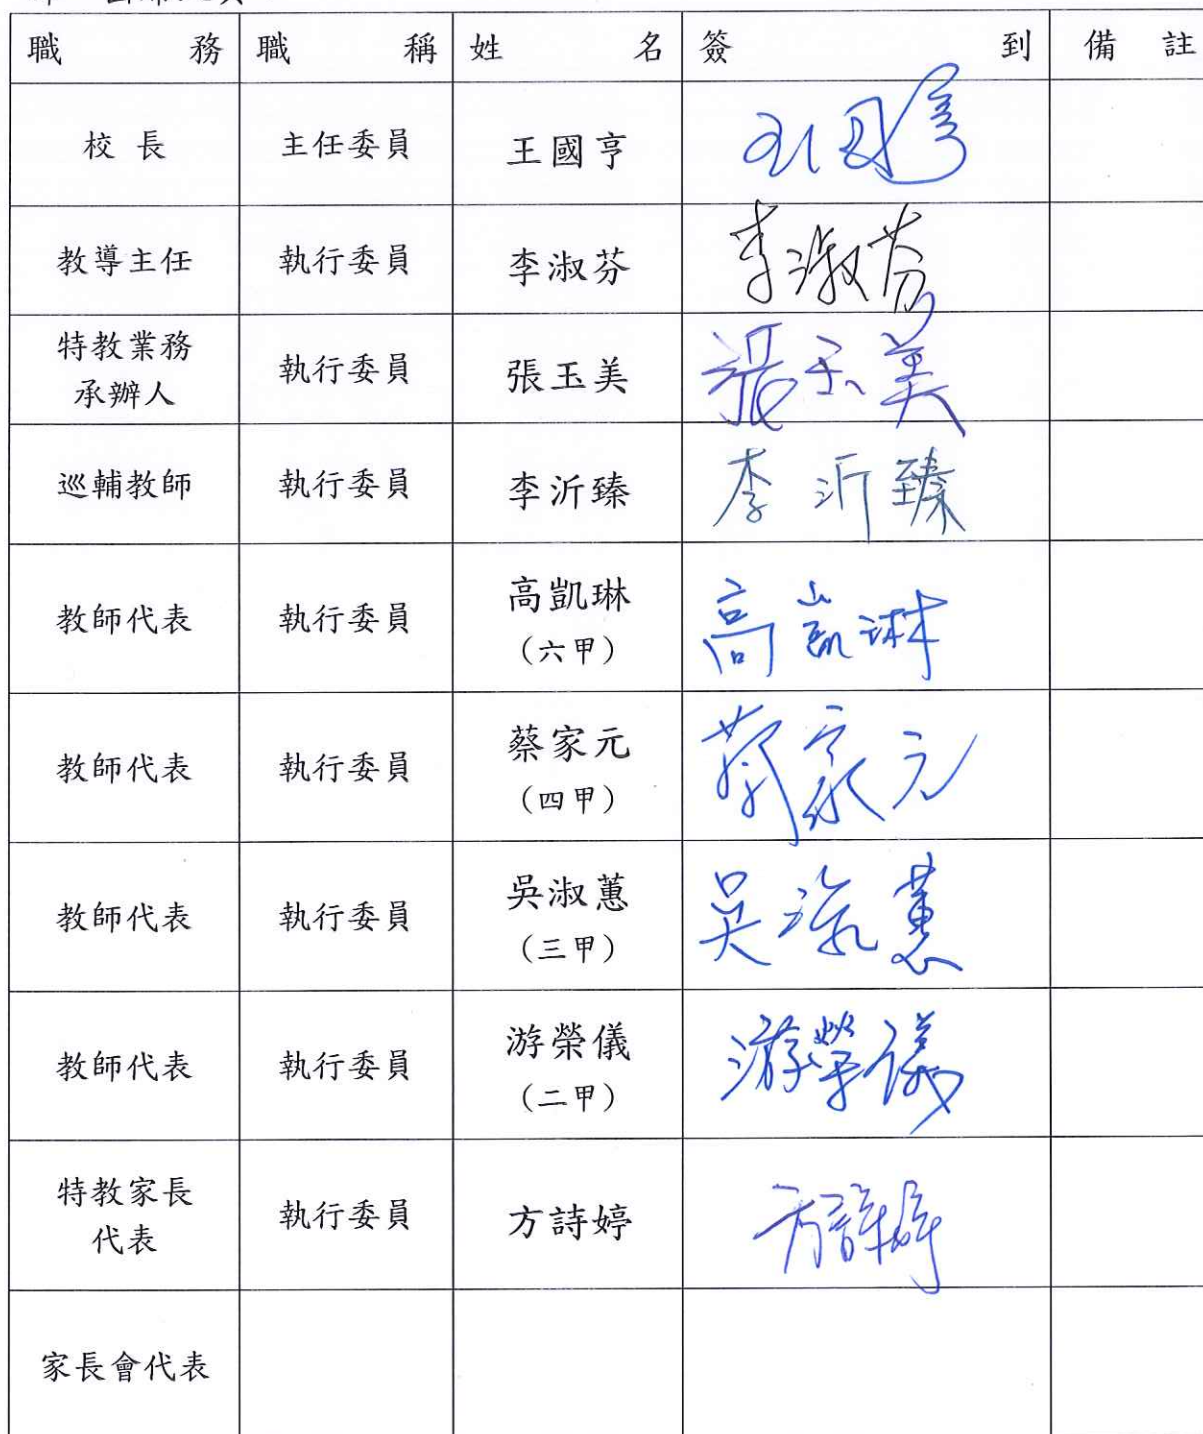 職務 職稱 姓名 簽到 備註
校長 主任委員 王國亨
教導主任 執行委員 李淑芬 李淑芬
特教業務
承辦人 執行委員 張玉美 張玉美
巡輔教師 執行委員 李沂臻 李沂臻
教師代表 執行委員 高凱琳 高凱琳
(六甲)
教師代表 執行委員 蔡家元 蔡家元
(四甲)
教師代表 執行委員 吳淑蕙 吳淑蕙
(三甲)
教師代表 執行委員 游榮儀 游榮儀
(二甲)
特教家長
代表 執行委員 方詩婷 方詩婷
家長會代表